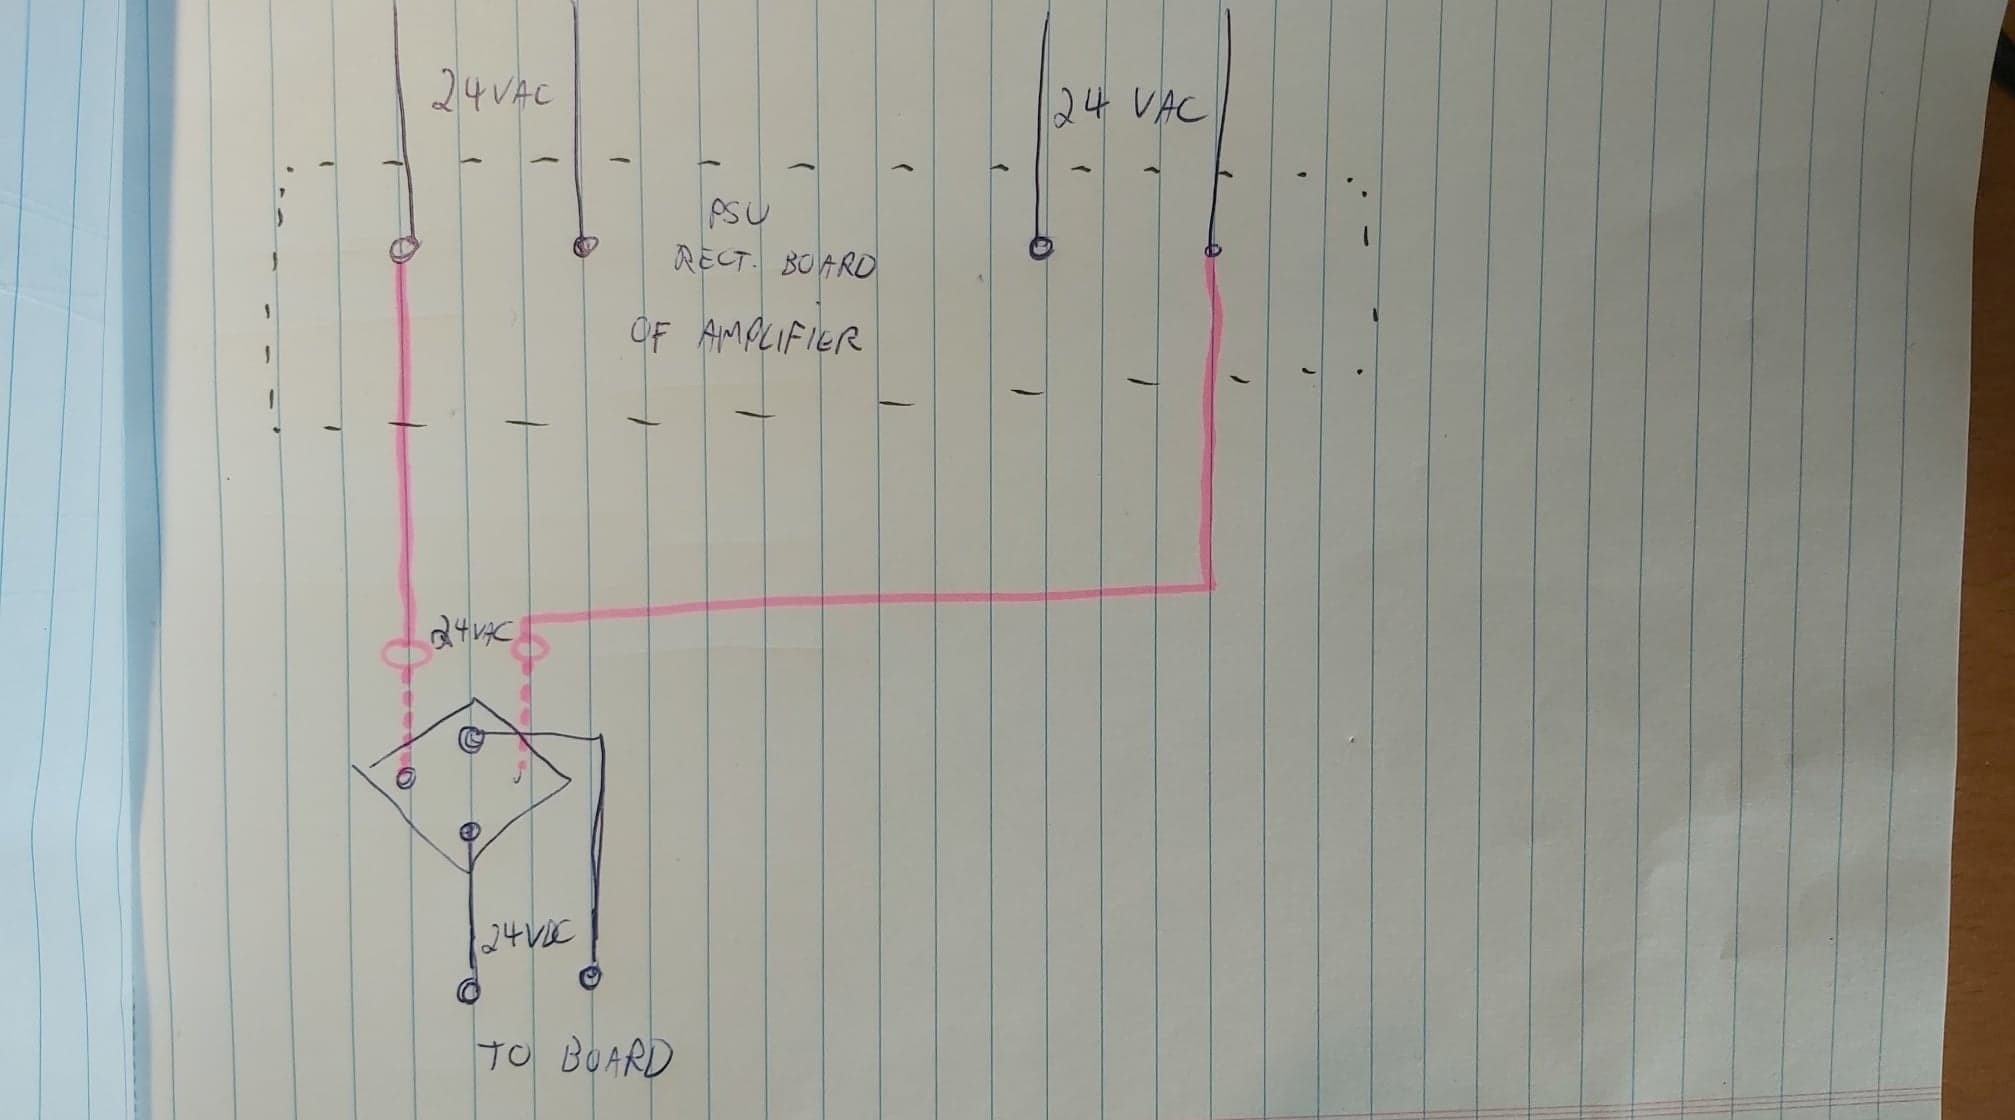 24VAC
24 VAC
PSU
RECT. BOARD
OF AMPLIFIER
24VAC
24VDC
TO BOARD